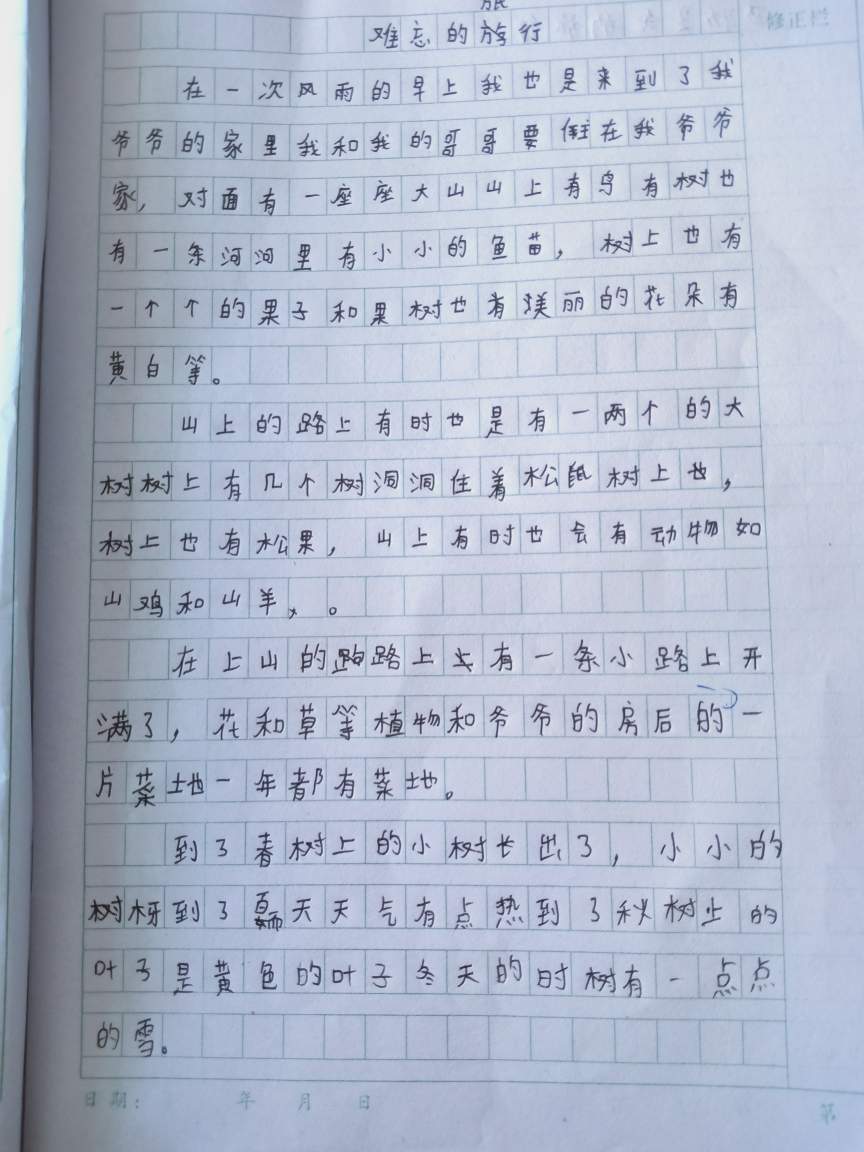 旅
难忘的旅行
修正栏
在一次风雨的早上我也是来到了我
爷爷的家里我和我的哥哥要住在我爷爷
家，对面有一座座大山山上有鸟有树也
有一条河河里有小小的鱼苗，树上也有
一个个的果子和果树也有美丽的花朵有
黄白等。
山上的路上有时也是有一两个的大
树树上有几个树洞洞住着松鼠树上也，
树上也有松果，山上有时也会有动物如
山鸡和山羊、。
在上山的路上有一条小路上开
满了，花和草等植物和爷爷的房后的一
片菜地一年都有菜地。
到了春树上的小树长出了，小小的
树枒到了夏天天气有点热到了秋树上的
叶子是黄色的叶子冬天的时树有一点点
的雪。
日期： 年 月 日
第